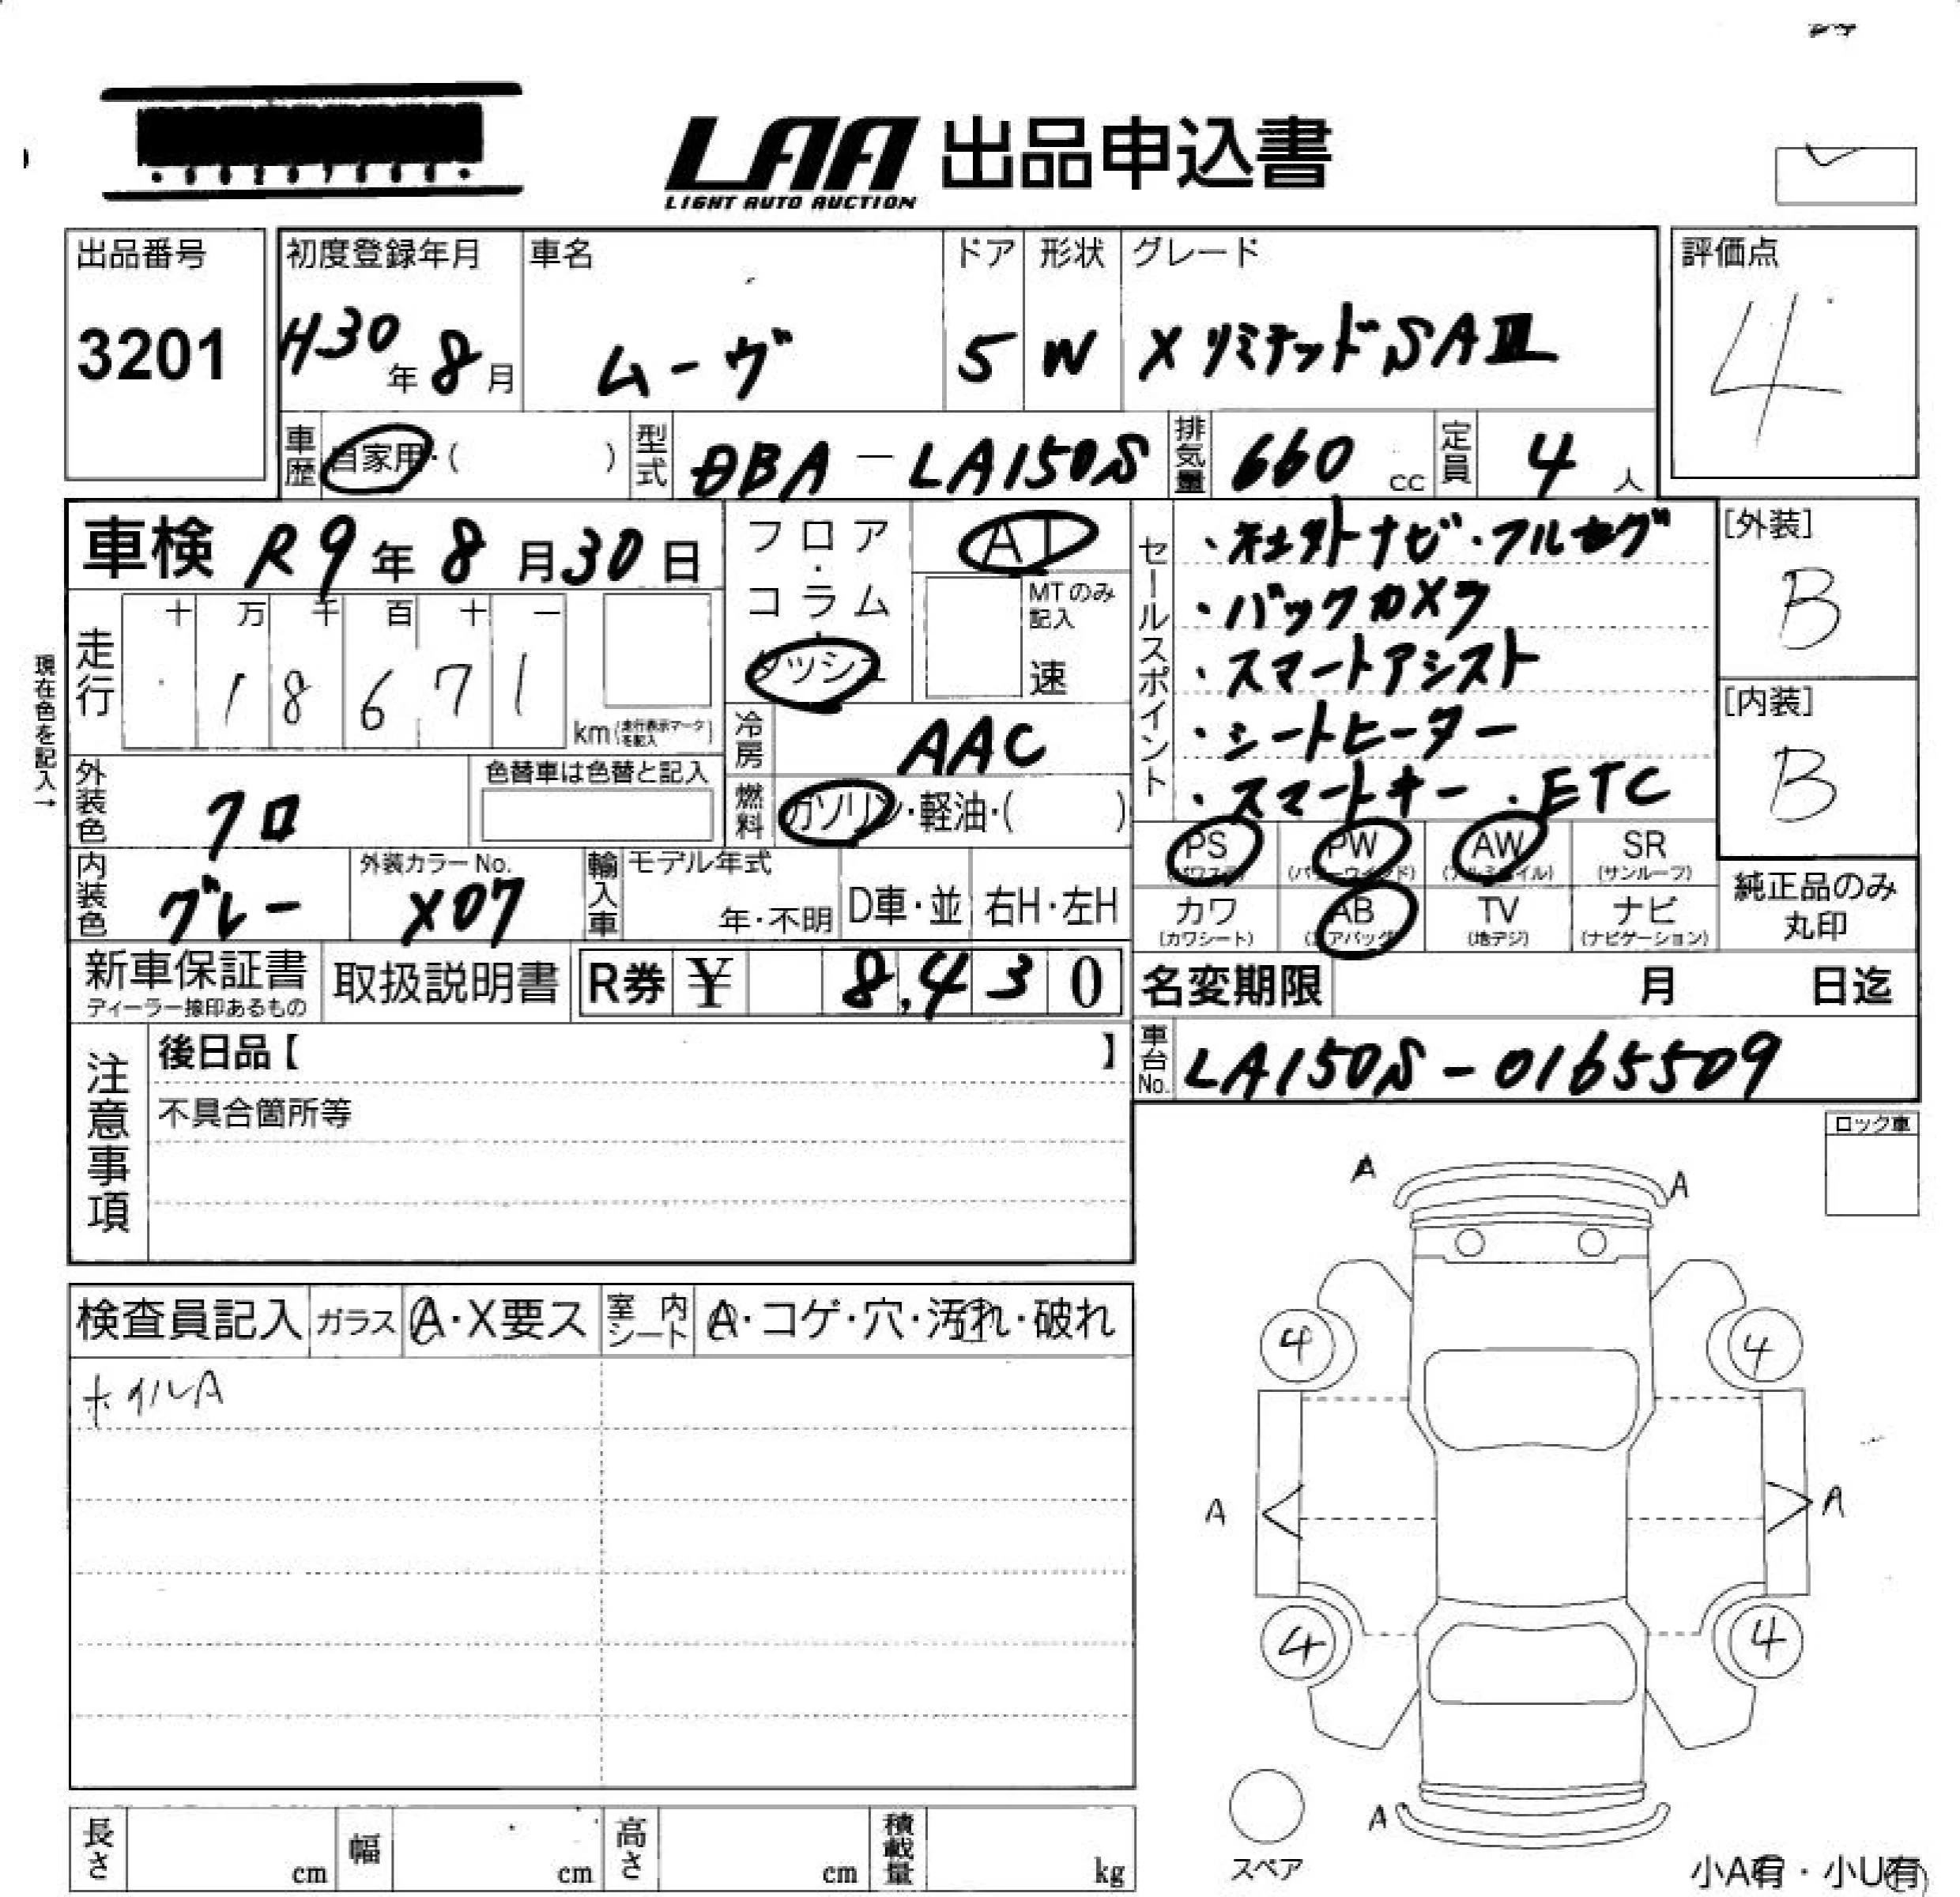 LAA 出品申込書
LIGHT AUTO AUCTION
出品番号 3201
初度登録年月 H30年8月
車名 ムーヴ
ドア 5
形状 W
グレード X リミテッドSAⅢ
評価点 4
車歴 自家用・( )
型式 DBA-LA150S
排気量 660 cc
定員 4人
車検 R9年8月30日
フロア・コラム・ダッシュ
AT
MTのみ記入 速
セールスポイント
・社外ナビ・フルセグ
・バックカメラ
・スマートアシスト
・シートヒーター
・スマートキー・ETC
[外装] B
[内装] B
現在色を記入→
走行 十 万 千 百 十 一
18671 km(走行表示マークを記入)
冷房 AAC
燃料 ガソリン・軽油・( )
外装色 クロ
色替車は色替と記入
内装色 グレー
外装カラーNo. X07
輸入車 モデル年式 年・不明 D車・並 右H・左H
PS (パワステ) PW (パワーウインド) AW (アルミホイル) SR (サンルーフ)
カワ (カワシート) AB (エアバッグ) TV (地デジ) ナビ (ナビゲーション)
純正品のみ丸印
新車保証書 ディーラー捺印あるもの
取扱説明書
R券 ¥ 8,430
名変期限 月 日迄
注意事項
後日品【 】
不具合箇所等
車台No. LA150S-0165509
ロック車
検査員記入 ガラス A・X要ス 室内シート A・コゲ・穴・汚れ・破れ
ホイルA
A A
4 4
A A
4 4
A
スペア
小A有・小U有
長さ cm 幅 cm 高さ cm 積載量 kg